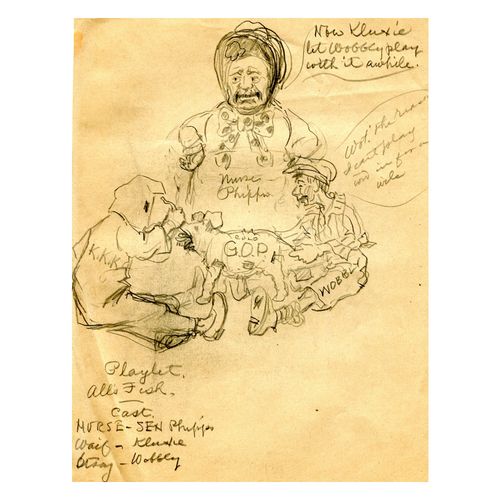 Now Kluxie
let Wobbly play
with it awhile.
Wot! The
I cant play
wile
Nurse
Phipps
K.K.K
COLO
G.O.P.
WOBBL
Playlet.
All's Fish.
Cast.
NURSE - SEN Phipps
Waif - Kluxie
Stray - Wobbly